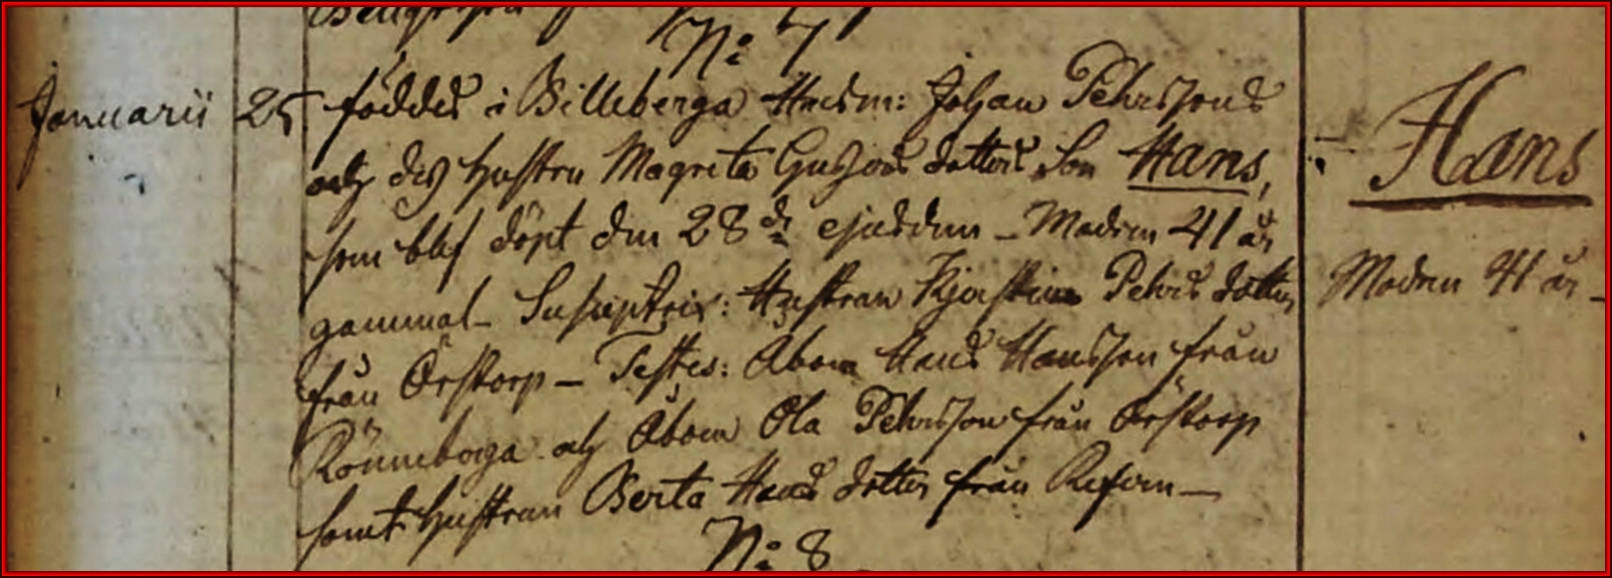 N: 7
Januarii 25 föddes i Billeberga Husm: Johan Pehrssons
och des hustru Magreta dotters Son Hans,
som blef döpt den 28de ejusdem – Modren 41 år
gammal – Susceptrix: Hustrun Kjerstina Pehrs dotter
från Örstorp – Testes: Åboen Hans Hansson från
Rönneberga och Åboen Ola Pehrsson från Örstorp
samt hustrun Berta Hans dotter från –
N: 8
Hans
Modren 41 år –